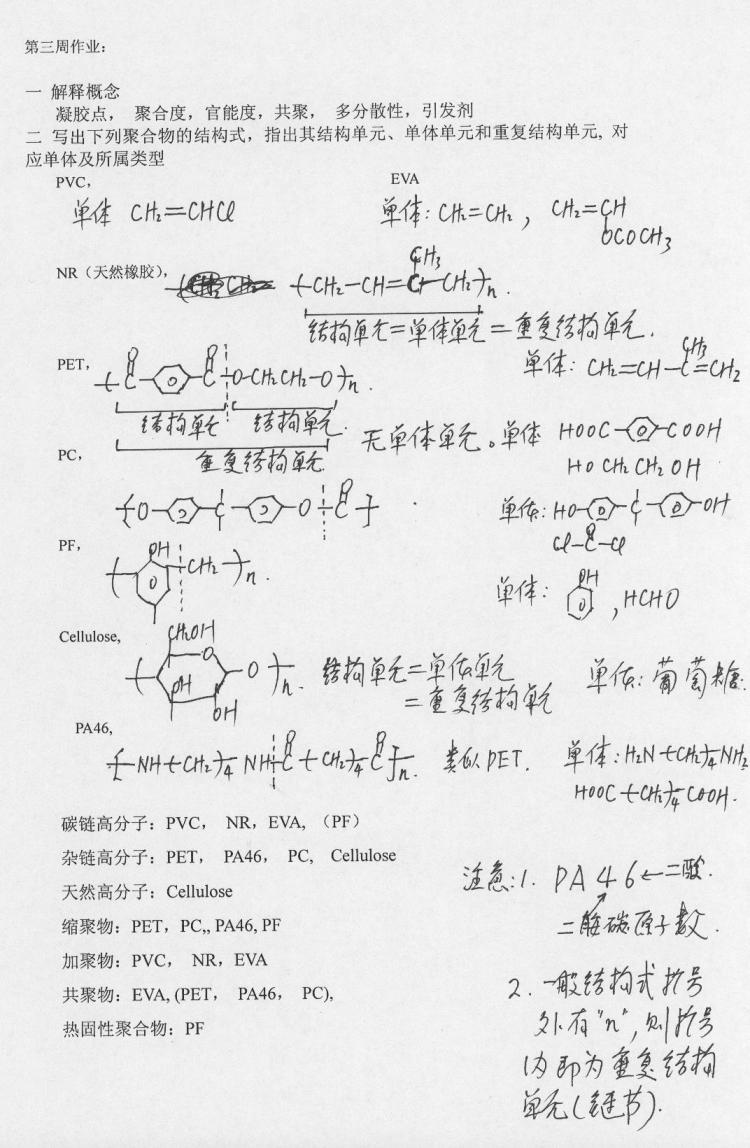 第三周作业：
一 解释概念
凝胶点， 聚合度，官能度，共聚， 多分散性，引发剂
二 写出下列聚合物的结构式，指出其结构单元、单体单元和重复结构单元, 对
应单体及所属类型
PVC， EVA
单体 CH₂=CHCl 单体: CH₂=CH₂, CH₂=CH
OCOCH₃
CH₃
NR（天然橡胶）, +CH₂-CH=C-CH₂+n.
结构单元=单体单元=重复结构单元.
单体: CH₂=CH-C=CH₂
CH₃
PET, O O
+C- -C-O-CH₂CH₂-O+n.
结构单元 结构单元. 无单体单元。单体 HOOC- -COOH
重复结构单元 HOCH₂CH₂OH
PC,
+O- -C- -O-C+ 单体: HO- -C- -OH
O
Cl-C-Cl
PF, OH
CH₂+n. 单体: OH , HCHO
Cellulose, CH₂OH
O
OH O+n. 结构单元=单体单元 单体: 葡萄糖.
OH =重复结构单元
PA46, O O
[NH+CH₂)₄NH-C+CH₂)₄C]n. 类似PET. 单体: H₂N+CH₂)₄NH₂
HOOC+CH₂)₄COOH.
碳链高分子：PVC， NR，EVA, （PF）
杂链高分子：PET， PA46， PC, Cellulose
天然高分子：Cellulose
缩聚物：PET，PC,, PA46, PF
加聚物：PVC， NR，EVA
共聚物：EVA, (PET， PA46， PC),
热固性聚合物：PF
注意:1. PA46←二酸.
二胺碳原子数.
2. 一般结构式括号
外有"n", 则括号
内即为重复结构
单元(链节).